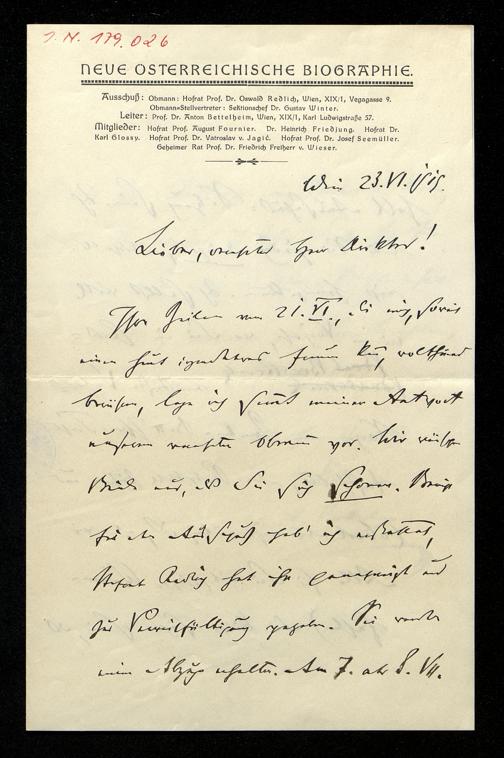 J. N. 179.026
NEUE ÖSTERREICHISCHE BIOGRAPHIE.
Ausschuß: Obmann: Hofrat Prof. Dr. Oswald Redlich, Wien, XIX/1, Vegagasse 9.
Obmann=Stellvertreter: Sektionschef Dr. Gustav Winter.
Leiter: Prof. Dr. Anton Bettelheim, Wien, XIX/1, Karl Ludwigstraße 57.
Mitglieder: Hofrat Prof. August Fournier. Dr. Heinrich Friedjung. Hofrat Dr.
Karl Glossy. Hofrat Prof. Dr. Vatroslav v. Jagić. Hofrat Prof. Dr. Josef Seemüller.
Geheimer Rat Prof. Dr. Friedrich Freiherr v. Wieser.
Wien 23.VI.
Lieber, verehrter Herr Direktor!
Ihre Zeilen vom 21. VI., die mir, sowie
einen
lege ich samt meiner Antwort
unserem verehrten Obmann vor. Wir
nur, daß Sie sich schonen.
für den Ausschuß hab' ich erstattet,
Hofrat Redlich hat ihn genehmigt und
zur Vervielfältigung gegeben. Sie werden
einen Abzug erhalten. Am 7. oder 8. VII.